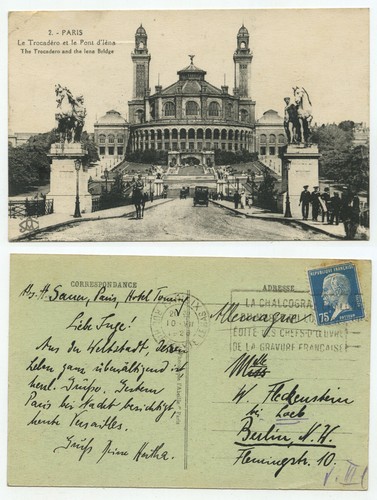 2. - PARIS
Le Trocadéro et le Pont d'Iéna
The Trocadero and the Iena Bridge
CORRESPONDANCE
ADRESSE
Paris, Hotel
Liebe Inge!
Aus der Weltstadt, deren
Leben ganz überwältigend ist
herzl. Grüsse. Gestern
Paris bei Nacht besichtigt
heute Versailles.
Gruß Deine Martha
LA CHALCOGRA
EDITE LES CHEFS-D'ŒUVRE
DE LA GRAVURE FRANÇAISE
REPUBLIQUE FRANÇAISE
75
POSTES
Allemagne
Mlle
W. Fleckenstein
bei Loeb
Berlin, N.W.
Flemingstr. 10.